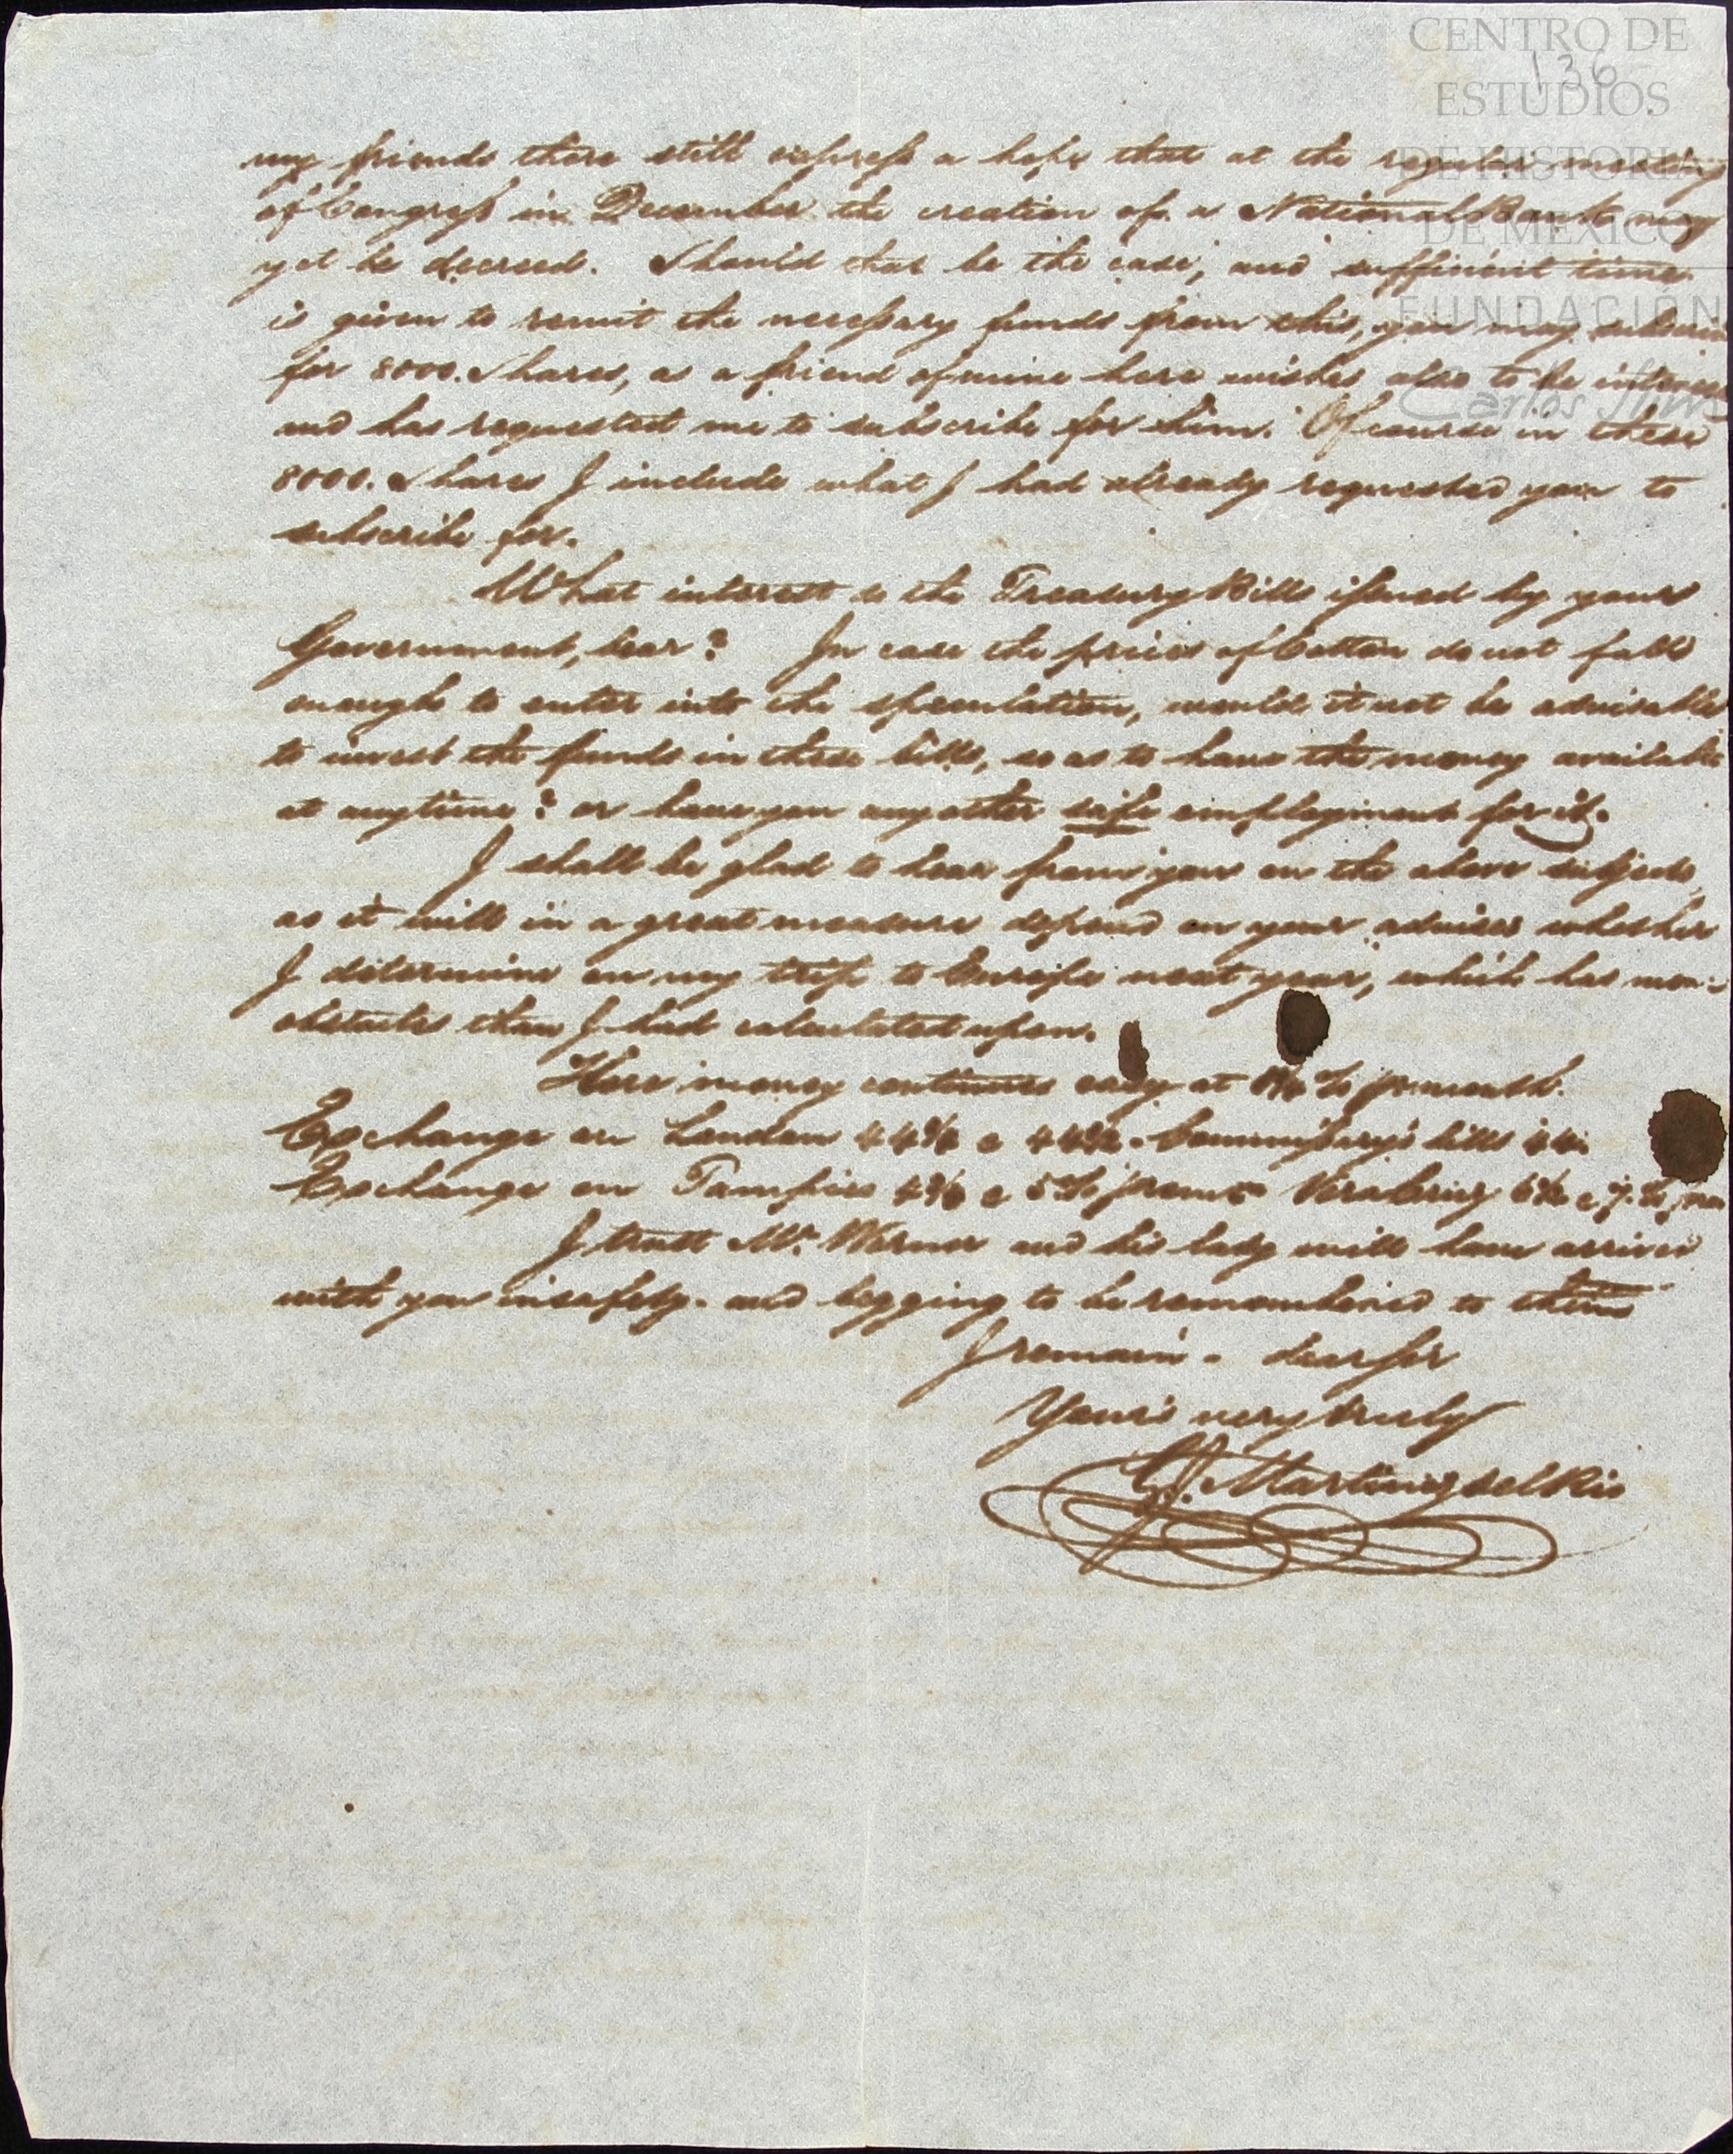 CENTRO DE
136
ESTUDIOS
DE HISTORIA
DE MEXICO
FUNDACIÓN
Carlos Slim
my friends there still express a hope that at the regular meeting
of Congress in December the creation of a National Bank may
yet be decreed. Should that be the case, and sufficient time
is given to remit the necessary funds from this, you may
for 8000. Shares, as a friend of mine here wishes also to be
and has requested me to subscribe for him. Of course in these
8000. Shares I include what I had already requested you to
subscribe for.
What interest do the Treasury Bills issued by your
Government, bear? In case the prices of Cotton do not fall
enough to enter into the speculation, would it not be advisable
to invest the funds in these bills, so as to have the money available
at anytime? or have you any other safe employment for it.
I shall be glad to hear from you on the above subjects,
as it will in a great measure depend on your advices whether
I determine on my trip to Europe next year, which has more
obstacles than I had calculated upon.
Here money continues easy at % p. month.
Exchange on London a Commissary's bills 44.
Exchange on Tampico a 5% prem: Vera Cruz a 7.%
I trust Mr. Werner and his lady will have arrived
with you in safety. and begging to be remembered to them
I remain. dear sir
Yours very truly
G. Martinez del Rio